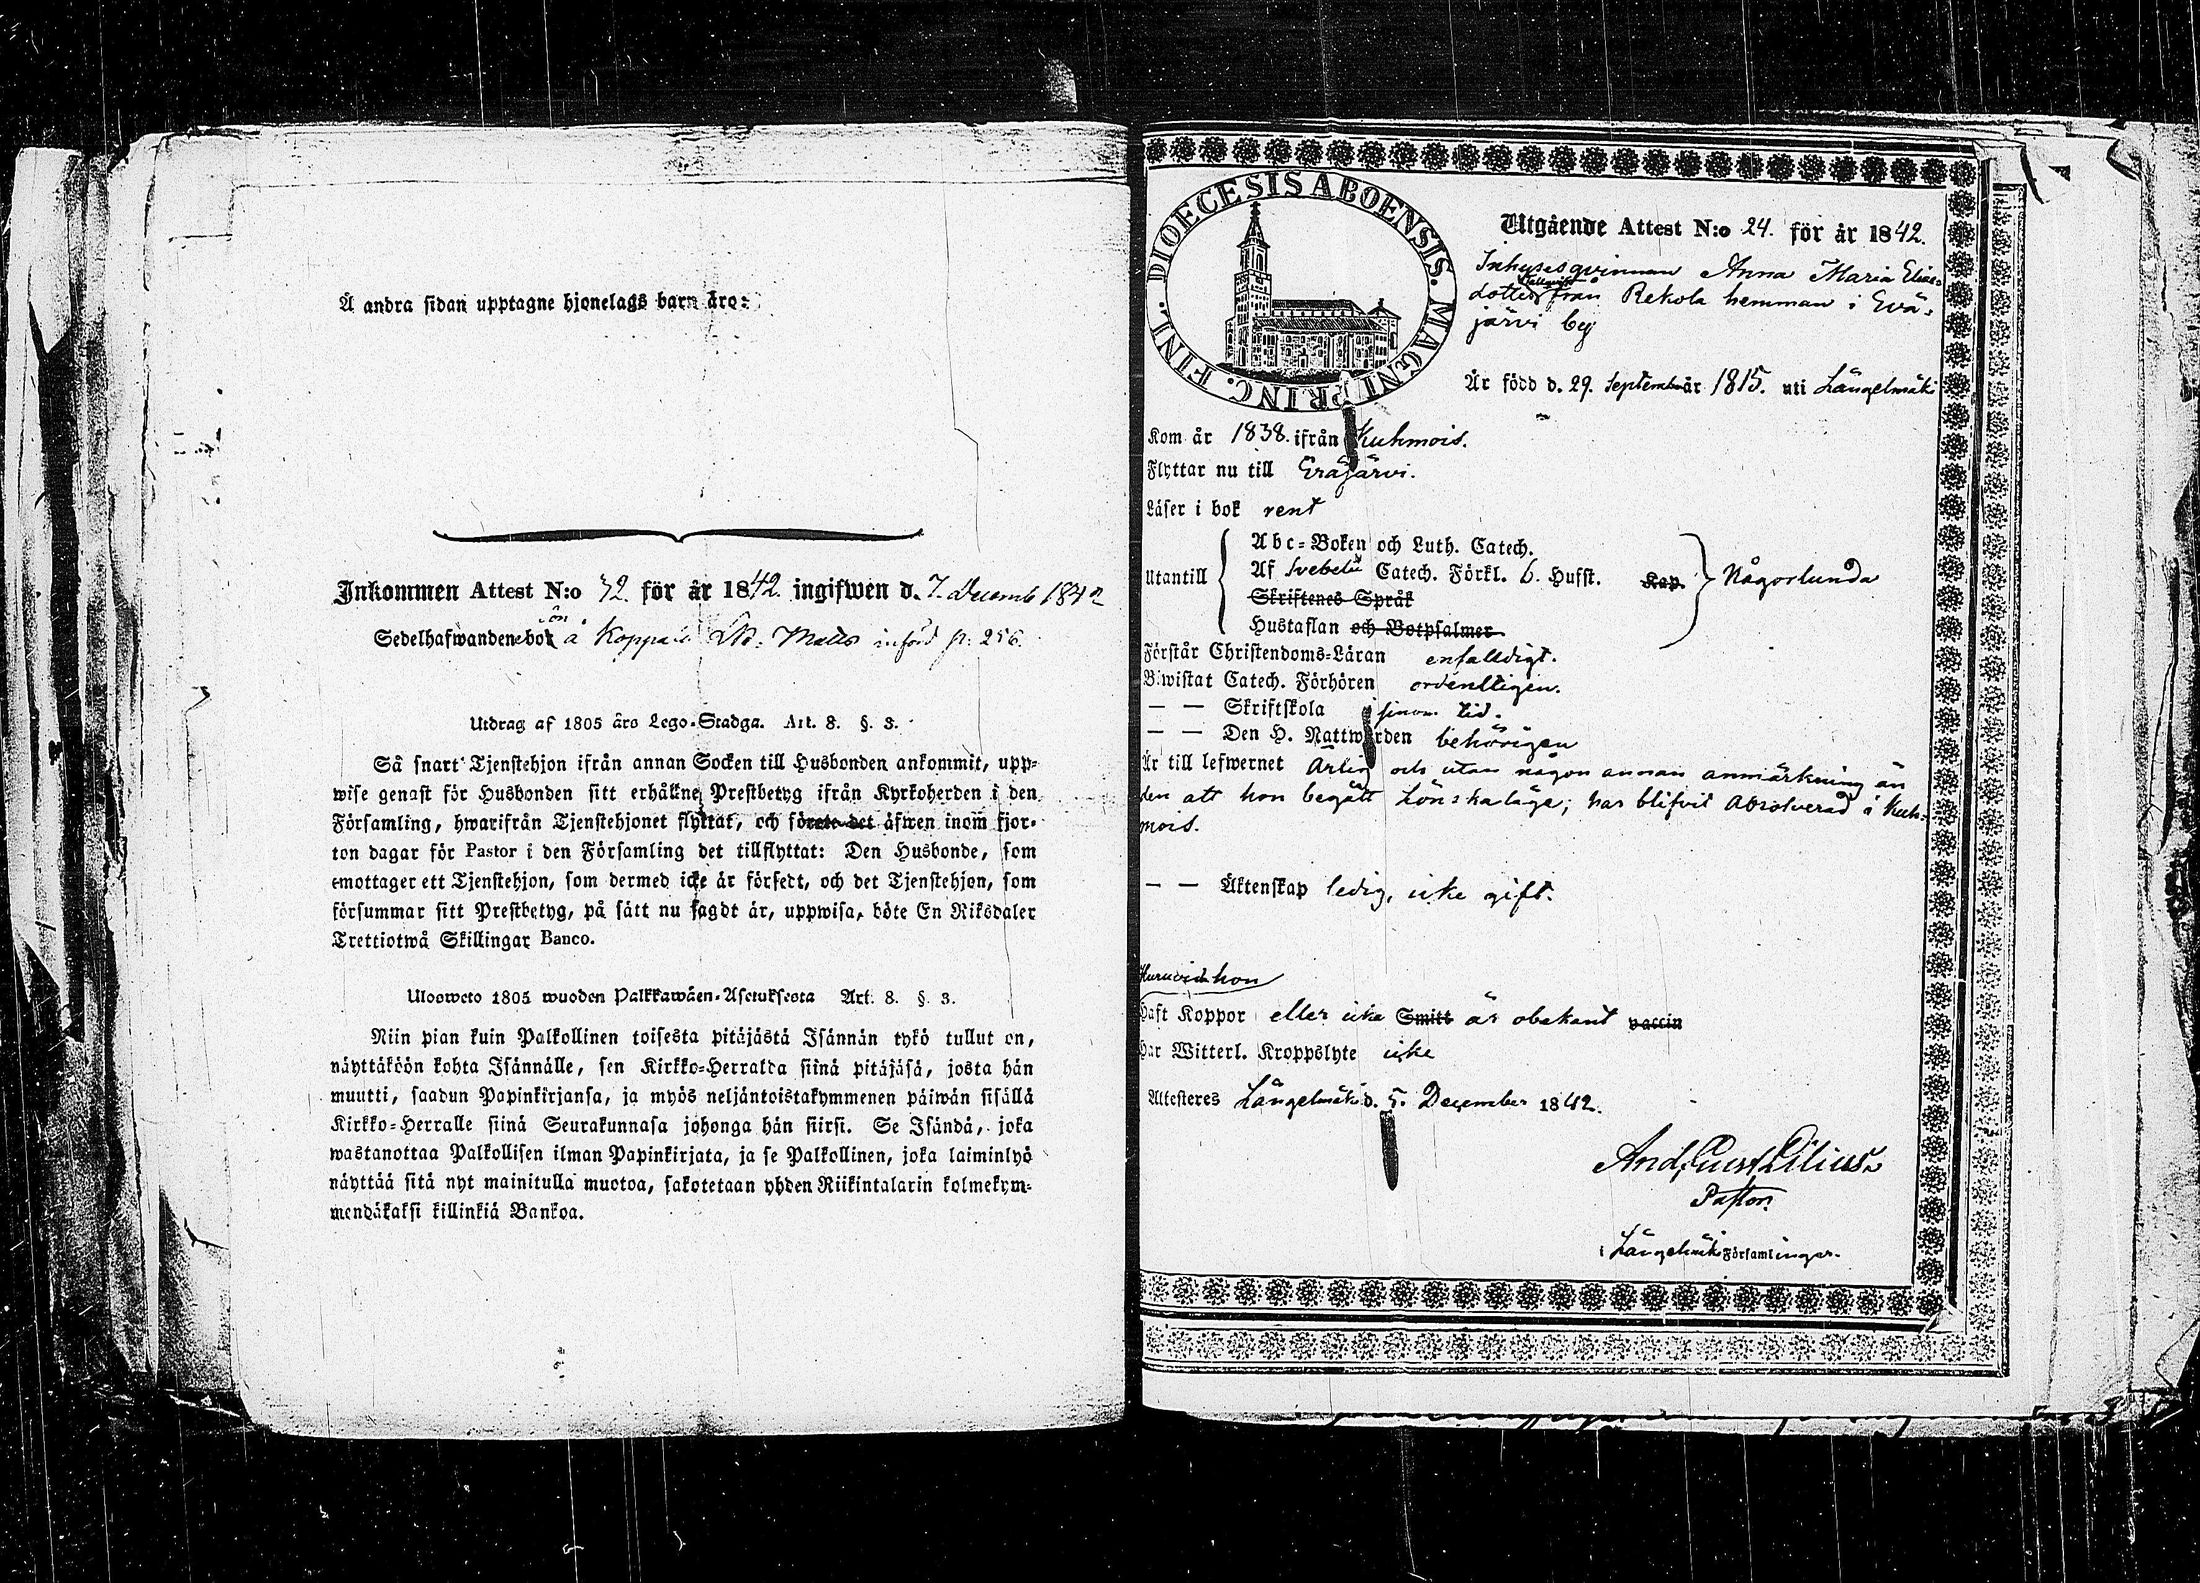 Å andra sidan upptagne hjonelags barn äro:
Inkommen Attest N:o 72. för år 1842. ingifwen d. 7. Decemb 1842
Sedelhafwanden bor å Koppala Matts införd p. 256.
Utdrag af 1805 års Lego-Stadga. Art. 8. §. 3.
Så snart Tjenstehjon ifrån annan Socken till Husbonden ankommit, upp-
wise genast för Husbonden sitt erhållne Prestbetyg ifrån Kyrkoherden i den
Församling, hwarifrån Tjenstehjonet flyttat, och förete det äfwen inom fjor-
ton dagar för Pastor i den Församling det tillflyttat: Den Husbonde, som
emottager ett Tjenstehjon, som dermed icke är försedt, och det Tjenstehjon, som
försummar sitt Prestbetyg, på sätt nu sagdt är, uppwisa, böte En Riksdaler
Trettiotwå Skillingar Banco.
Ulosweto 1805 wuoden Palkkawäen-Asetuksesta Art. 8. §. 3.
Niin pian kuin Palkollinen toisesta pitäjästä Isännän tykö tullut on,
näyttäköön kohta Isännälle, sen Kirkko-Herralda siinä pitäjäsä, josta hän
muutti, saadun Papinkirjansa, ja myös neljäntoistakymmenen päiwän sisällä
Kirkko-Herralle siinä Seurakunnasa johonga hän siirsi. Se Isändä, joka
wastanottaa Palkollisen ilman Papinkirjata, ja se Palkollinen, joka laiminlyö
näyttää sitä nyt mainitulla muotoa, sakotetaan yhden Riikintalarin kolmekym-
mendäkaksi killinkiä Bankoa.
DIOECESIS ABOENSIS. MAGNI PRINC. FINL.
Utgående Attest N:o 24. för år 1842.
Inhysesqvinnan Anna Maria Elias-
dotter från Rekola hemman i Evä-
järvi by
Är född d. 29. September år 1815. uti Längelmäki
Kom år 1838. ifrån Kuhmois.
Flyttar nu till Eräjärvi.
Läser i bok rent
Abc-Boken och Luth. Catech.
Utantill Af Svebelii Catech. Förkl. 6. Hufst. Kap. Någorlunda
Skriftenes Språk
Hustaflan och Botpsalmer
Förstår Christendoms-Läran enfaldigt.
Biwistat Catech. Förhören ordentligen.
— — Skriftskola i sinom tid.
— — Den H. Nattwarden behörigen
Är till lefwernet Ärlig och utan någon annan anmärkning än
den att hon begått Lönskaläge; har blifvit Absolverad i Kuh-
mois.
— — Äktenskap ledig, icke gift.
Huruvida hon
Haft Koppor eller icke Smitt är obekant vaccin
Har Witterl. Kroppslyte icke
Attesteres Längelmäki d. 5. December 1842.
And. Gust. Lilius
Pastor
i Längelmäki Församlingar.